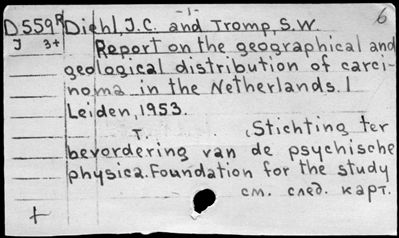 -1-
6
D559R Diehl, J.C. and Tromp, S.W.
J 3+ Report on the geographical and
geological distribution of carci-
noma in the Netherlands. I
Leiden, 1953.
T. , Stichting ter
bevordering van de psychische
physica. Foundation for the study
см. след. карт.
+